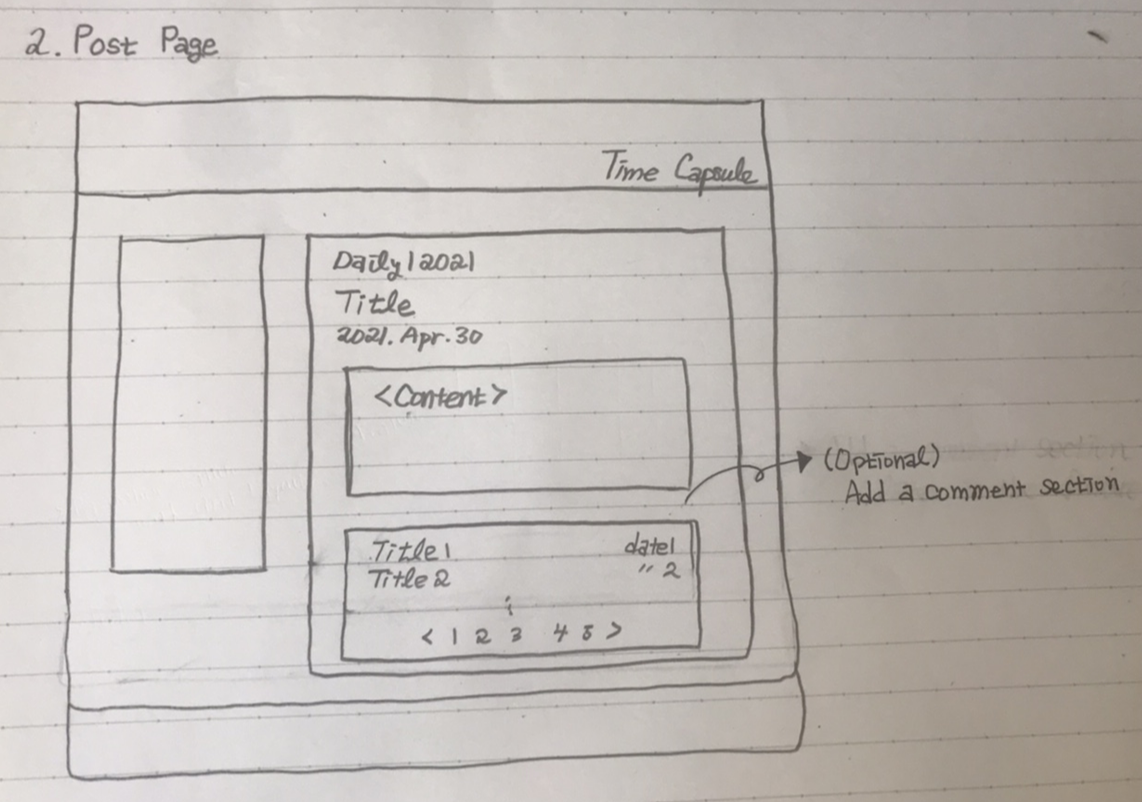 2. Post Page
Time Capsule
Daily | 2021
Title
2021. Apr. 30
<Content>
(Optional)
Add a comment section
Title 1 date 1
Title 2 〃 2
⋮
< 1 2 3 4 5 >